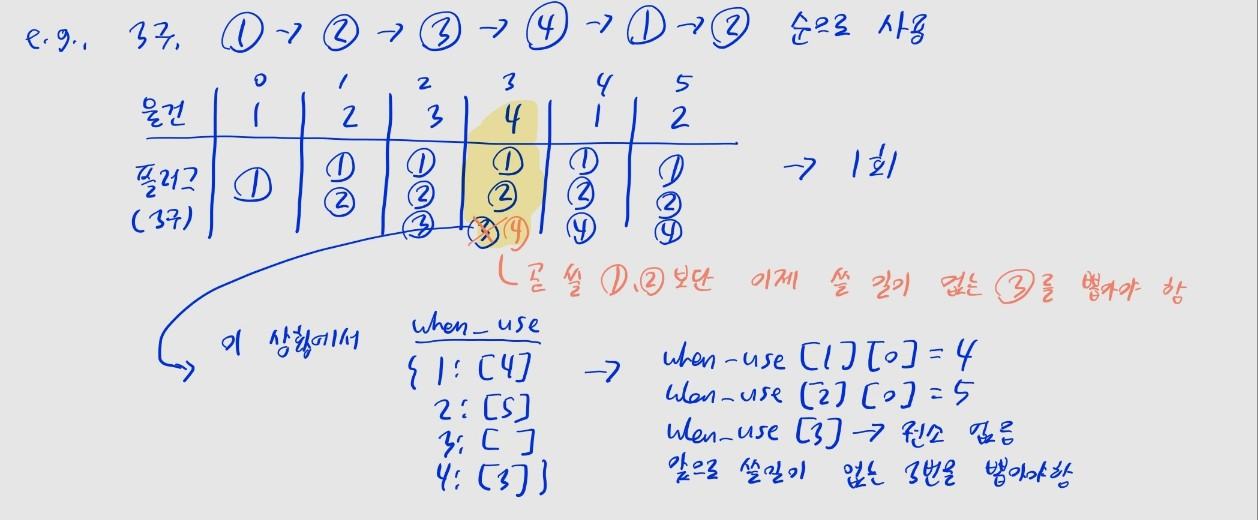 e.g., 3구. ① → ② → ③ → ④ → ① → ② 순으로 사용
0 1 2 3 4 5
물건 1 2 3 4 1 2
플러그 ① ① ① ① ① ①
② ② ② ② ②
(3구) ③ ③ ④ ④ ④
→ 1회
곧 쓸 ①, ② 보단 이제 쓸 일이 없는 ③를 뽑아야 함
이 상황에서
when_use
{ 1: [4]
2: [5]
3: [ ]
4: [3] }
→ when_use [1] [0] = 4
when_use [2] [0] = 5
when_use [3] → 원소 없음
앞으로 쓸일이 없는 3번을 뽑아야함